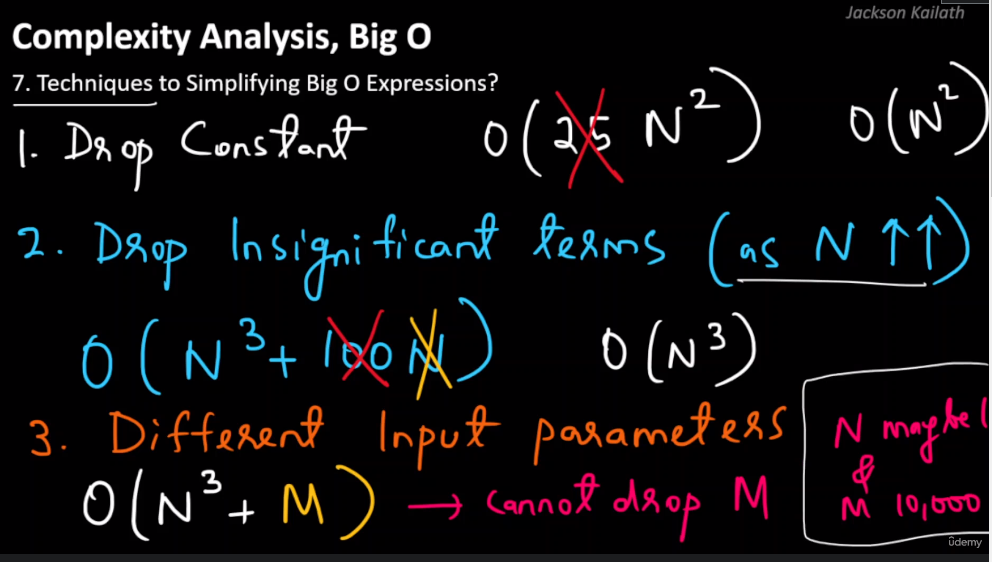 Jackson Kailath
Complexity Analysis, Big O
7. Techniques to Simplifying Big O Expressions?
1. Drop Constant O(25 N²) O(N²)
2. Drop Insignificant terms (as N ↑↑)
O(N³ + 100 N) O(N³)
3. Different Input parameters
O(N³ + M) → cannot drop M
N maybe
&
M 10,000
ûdemy